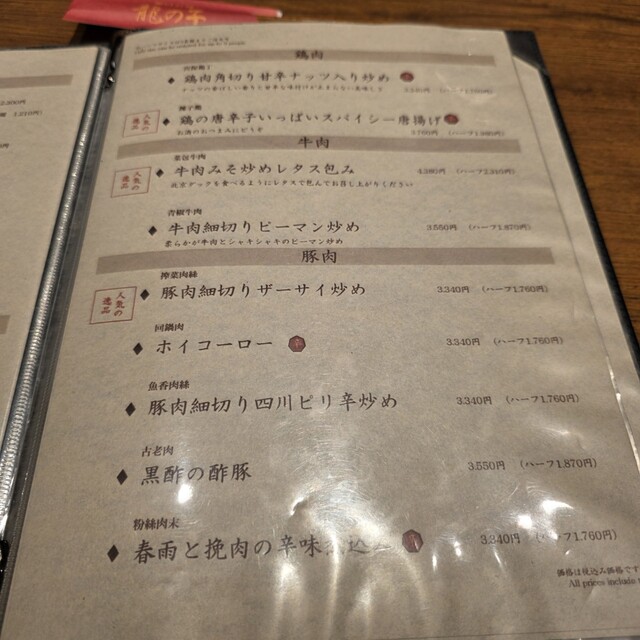 龍の子
鶏肉
宮保鶏丁
鶏肉角切り甘辛ナッツ入り炒め
辣子鶏
人気の逸品
鶏の唐辛子いっぱいスパイシー唐揚げ
お酒のおつまみにどうぞ
牛肉
菜包牛肉
人気の逸品
牛肉みそ炒めレタス包み 4.380円 (ハーフ2.310円)
北京ダックを食べるようにレタスで包んでお召し上がりください
青椒牛肉
牛肉細切りピーマン炒め 3.550円 (ハーフ1.870円)
柔らかが牛肉とシャキシャキのピーマン炒め
豚肉
搾菜肉絲
人気の逸品
豚肉細切りザーサイ炒め 3.340円 (ハーフ1.760円)
回鍋肉
ホイコーロー 3.340円 (ハーフ1.760円)
魚香肉絲
豚肉細切り四川ピリ辛炒め 3.340円 (ハーフ1.760円)
古老肉
黒酢の酢豚 3.550円 (ハーフ1.870円)
粉絲肉末
春雨と挽肉の辛味 3.340円 (ハーフ1.760円)
価格は税込み価格です
All prices include
2.200円
1.210円